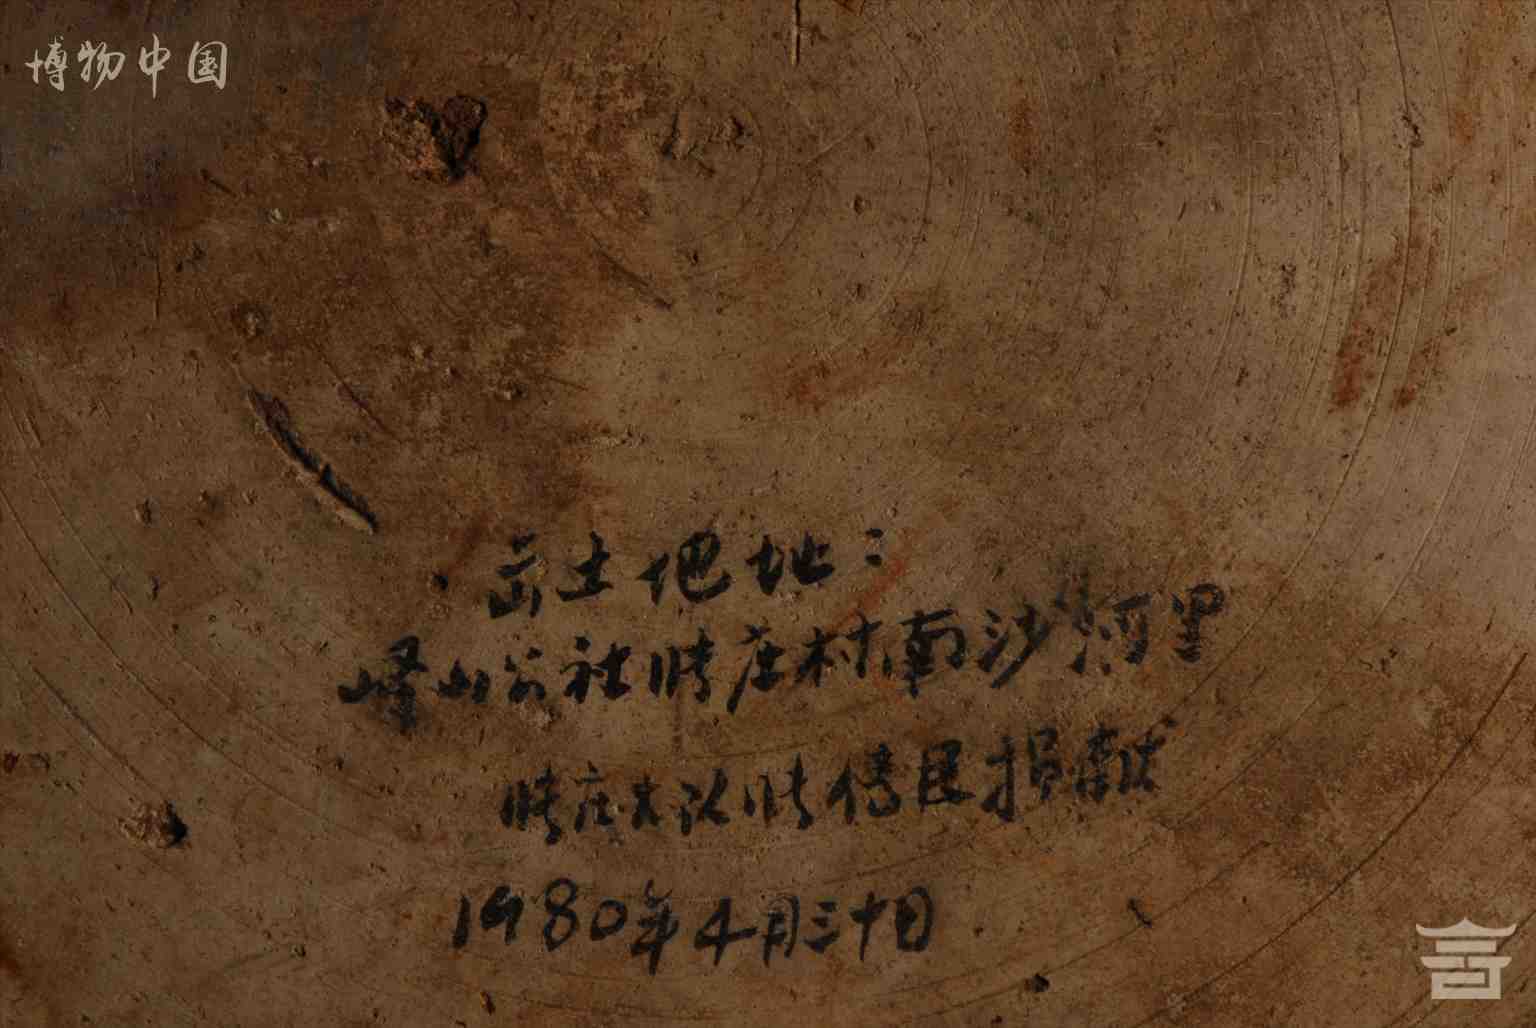 博物中国
出土地址：
峄山公社时庄村南沙河里
时庄大队时传民捐献
1980年4月三十日